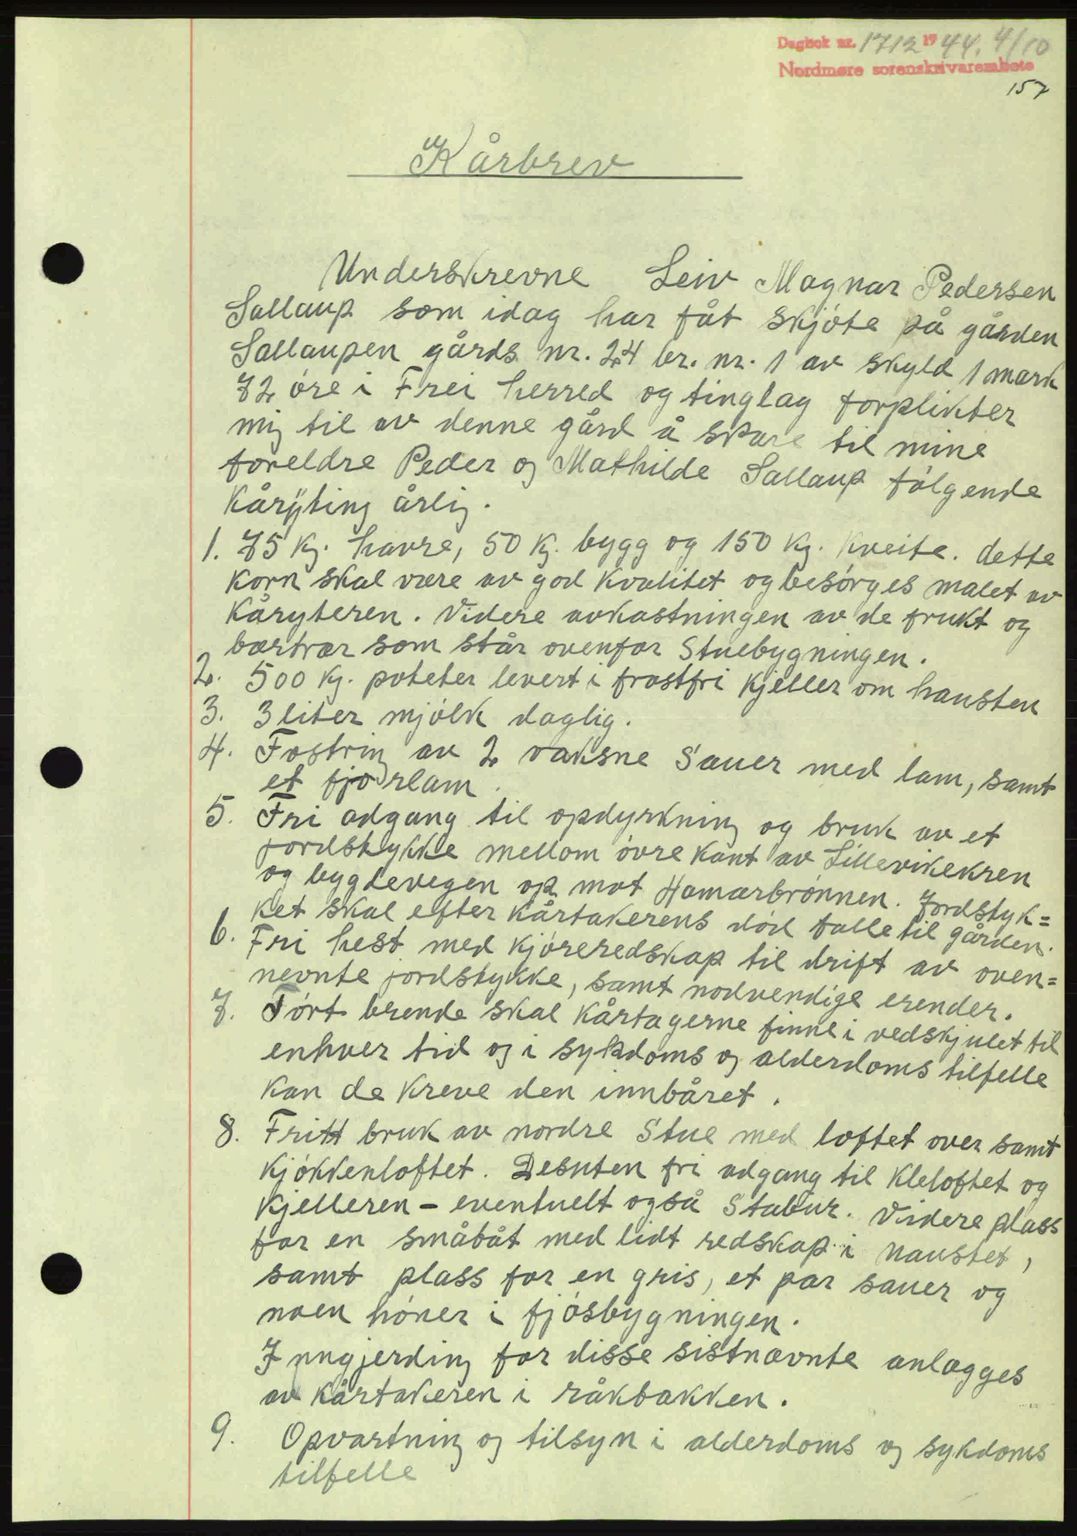 Dagbok nr. 1712 1944. 4/10
Nordmøre sorenskrivarembete
157
Kårbrev
Underskrevne Leiv Magnar Pedersen
Sallaup som idag har fåt skjøte på gården
Sallaupen gårds nr. 24 br. nr. 1 av skyld 1 mark
72 øre i Frei herred og tinglag forplikter
mig til av denne gård å svare til mine
foreldre Peder og Mathilde Sallaup følgende
Kårytinj årlig.
1. 75 kg. havre, 50 kg. bygg og 150 kg. kveite. dette
korn skal være av god kvalitet og besørges malet av
kåryteren. Videre avkastningen av de frukt og
bærtrær som står ovenfor Stuebygningen.
2. 500 kg. poteter levert i frostfri kjeller om hausten
3. 3 liter mjólk daglig.
4. Fostring av 2 vaksne Sauer med lam, samt
et fjorlam.
5. Fri adgang til opdyrkning og bruk av et
jordstykke mellom øvre kant av Lillevikekren
og bygdevegen op mot Hamarbrønnen. Jordstyk=
ket skal efter kårtakerens død falle til gården.
6. Fri hest med kjøreredskap til drift av oven=
nevnte jordstykke, samt nødvendige erender.
7. Tørt brende skal Kårtagerne finne i vedskjulet til
enhver tid og i sykdoms og alderdoms tilfelle
kan de kreve den innbåret.
8. Fritt bruk av nordre Stue med loftet over samt
kjøkkenloftet. Desuten fri adgang til kleloftet og
kjelleren - eventuelt også Stabur. Videre plass
for en småbåt med lidt redskap i naustet,
samt plass for en gris, et par sauer og
noen høner i fjøsbygningen.
Inngjerding for disse sistnævnte anlægges
av kårtakeren i råkbakken.
9. Opvartning og tilsyn i alderdoms og sykdoms
tilfelle